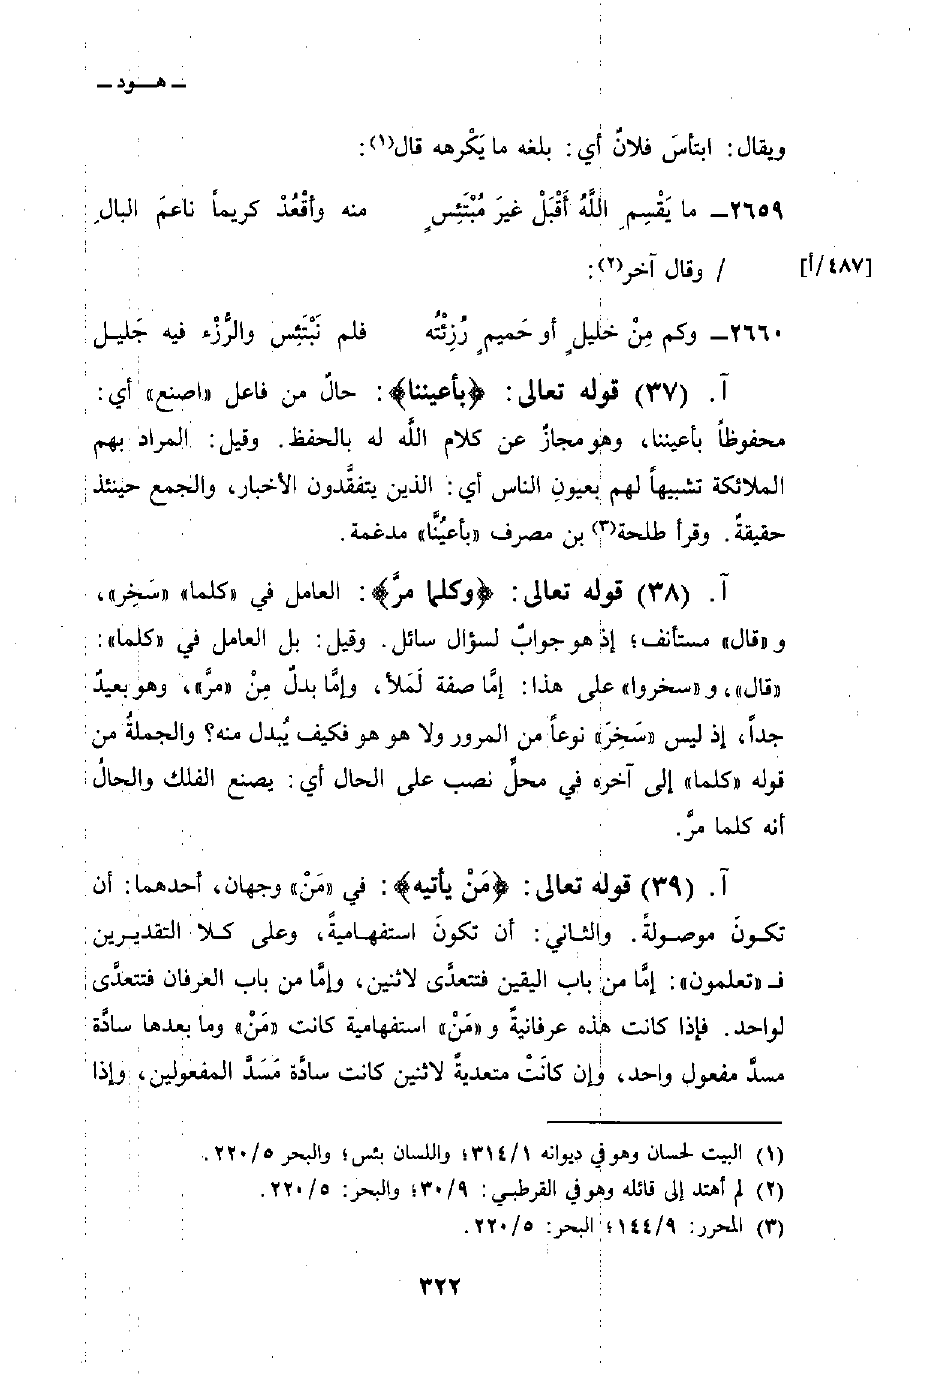 ـ هـود ـ
ويقال: ابتأسَ فلانٌ أي: بلغه ما يَكْرهه قال(١):
٢٦٥٩ـ ما يَقْسِمِ اللَّهُ أَقْبَلْ غيرَ مُبْتَئِسٍ منه وأقْعُدْ كريماً ناعمَ البالِ
[٤٨٧/أ] / وقال آخر(٢):
٢٦٦٠ـ وكم مِنْ خليلٍ أو حَميمٍ رُزِئْتُه فلم نَبْتَئِس والرُّزْء فيه جَليل
آ. (٣٧) قوله تعالى: ﴿بأعيننا﴾: حالٌ من فاعل «اصنع» أي:
محفوظاً بأعيننا، وهو مجازٌ عن كلام اللَّه له بالحفظ. وقيل: المراد بهم
الملائكة تشبيهاً لهم بعيونِ الناس أي: الذين يتفقَّدون الأخبار، والجمع حينئذ
حقيقةً. وقرأ طلحة(٣) بن مصرف «بأعيُنَّا» مدغمة.
آ. (٣٨) قوله تعالى: ﴿وكلما مرَّ﴾: العامل في «كلما» «سَخِر»،
و «قال» مستأنف؛ إذ هو جوابٌ لسؤال سائل. وقيل: بل العامل في «كلما»:
«قال»، و «سخروا» على هذا: إمَّا صفة لَملأ، وإمَّا بدلٌ مِنْ «مرَّ»، وهو بعيدٌ
جداً، إذ ليس «سَخِرَ» نوعاً من المرور ولا هو هو فكيف يُبدل منه؟ والجملةُ من
قوله «كلما» إلى آخره في محلِّ نصب على الحال أي: يصنع الفلك والحالُ
أنه كلما مرَّ.
آ. (٣٩) قوله تعالى: ﴿مَنْ يأتيه﴾: في «مَنْ» وجهان، أحدهما: أن
تكونَ موصولةً. والثاني: أن تكونَ استفهاميةً، وعلى كلا التقديرين
فـ «تعلمون»: إمَّا من باب اليقين فتتعدَّى لاثنين، وإمَّا من باب العرفان فتتعدَّى
لواحد. فإذا كانت هذه عرفانيةً و «مَنْ» استفهامية كانت «مَنْ» وما بعدها سادَّة
مسدَّ مفعول واحد، وإن كانَتْ متعديةً لاثنين كانت سادَّة مَسَدَّ المفعولين، وإذا
(١) البيت لحسان وهو في ديوانه ٣١٤/١؛ واللسان بئس؛ والبحر ٢٢٠/٥.
(٢) لم أهتد إلى قائله وهو في القرطبي: ٣٠/٩؛ والبحر: ٢٢٠/٥.
(٣) المحرر: ١٤٤/٩؛ البحر: ٢٢٠/٥.
٣٢٢